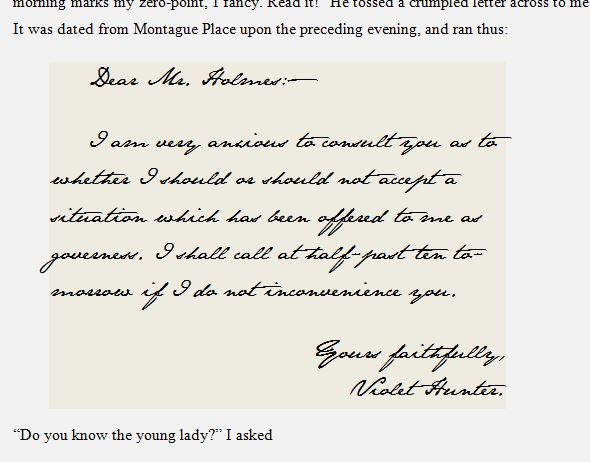 morning marks my zero-point, I fancy. Read it!" He tossed a crumpled letter across to me
It was dated from Montague Place upon the preceding evening, and ran thus:
Dear Mr. Holmes:—
I am very anxious to consult you as to
whether I should or should not accept a
situation which has been offered to me as
governess. I shall call at half-past ten to-
morrow if I do not inconvenience you.
Yours faithfully,
Violet Hunter.
“Do you know the young lady?” I asked